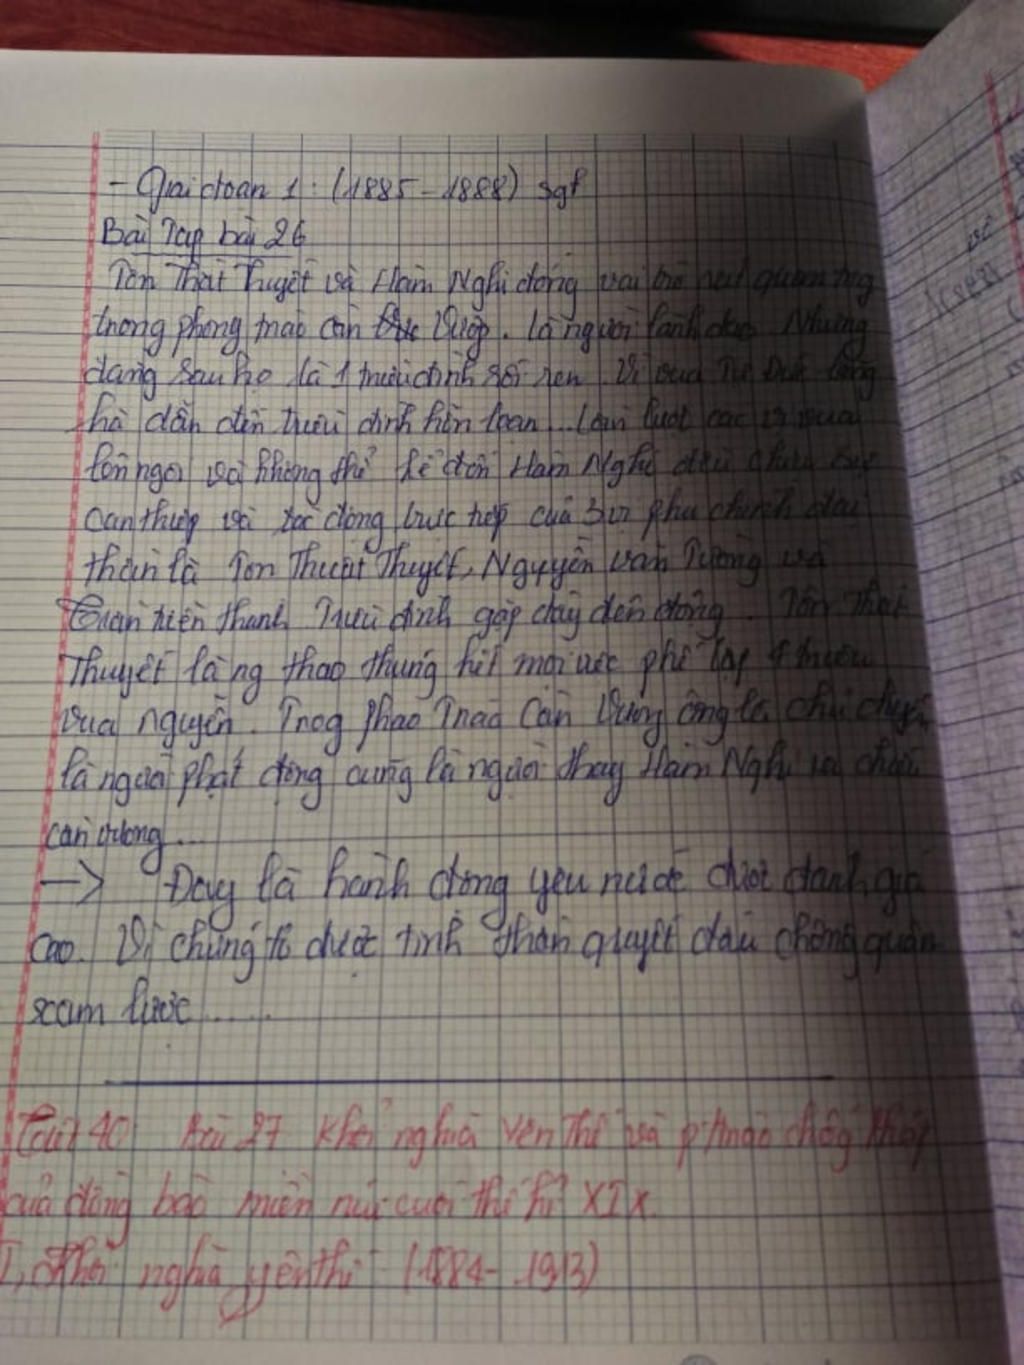 - Giai đoạn 1: (1885 - 1888) sgk
Bài Tập bài 26
Tôn Thất Thuyết và Hàm Nghi đóng vai trò rất quan trọng
trong phong trào cần Vương. Là người lãnh đạo Nhưng
đằng sau họ là 1 triều đình rối ren. Vì vua Tự Đức băng
hà dẫn đến triều đình hỗn loạn... Lần lượt các vị vua
lên ngôi và không thể kể đến Hàm Nghi đều chịu sự
can thiệp và tác động trực tiếp của 3 vị phụ chính đại
thần là Tôn Thuất Thuyết, Nguyễn Văn Tường và
Trần tiễn thành Triều đình gặp đầy đến động. Tôn Thất
Thuyết là ng thao thúng hết mọi việc phế lập 4 triều
vua nguyễn. Trog phao Trào Cần Vương ông là chủ
là người phát động cũng là người thay Hàm Nghi ra chiếu
cần vương ....
→ Đây là hành động yêu nước được đánh giá
cao. Vì chứng tỏ được tinh thần quyết đấu chống quân
xâm lược .....
Tiết 40 Bài 27 Khởi nghĩa Yên Thế và p/trào chống Pháp
của đồng bào miền núi cuối thế kỉ XIX.
I, Khởi nghĩa yên thế (1884 - 1913)